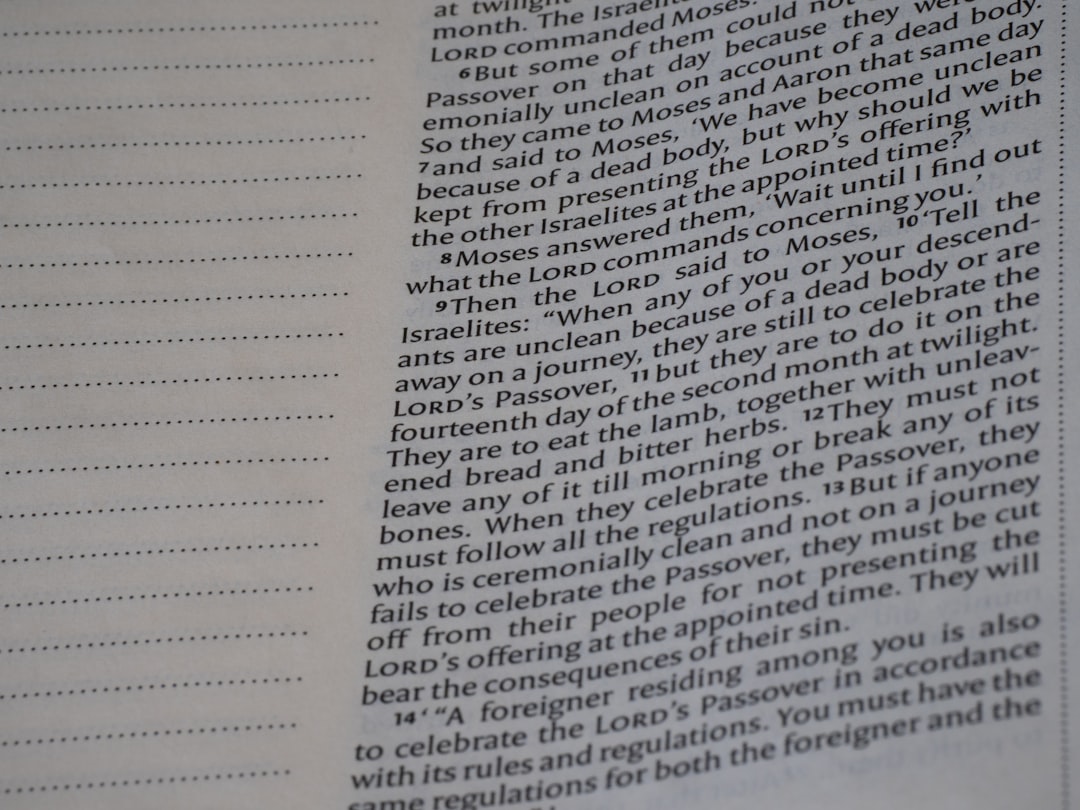 at twilight
month. The Israel
LORD commanded Moses.
6 But some of them could not
Passover on that day because they were
emonially unclean on account of a dead body.
So they came to Moses and Aaron that same day
7 and said to Moses, ‘We have become unclean
because of a dead body, but why should we be
kept from presenting the LORD’s offering with
the other Israelites at the appointed time?’
8 Moses answered them, ‘Wait until I find out
what the LORD commands concerning you.’
9 Then the LORD said to Moses, 10 ‘Tell the
Israelites: “When any of you or your descend-
ants are unclean because of a dead body or are
away on a journey, they are still to celebrate the
LORD’s Passover, 11 but they are to do it on the
fourteenth day of the second month at twilight.
They are to eat the lamb, together with unleav-
ened bread and bitter herbs. 12 They must not
leave any of it till morning or break any of its
bones. When they celebrate the Passover, they
must follow all the regulations. 13 But if anyone
who is ceremonially clean and not on a journey
fails to celebrate the Passover, they must be cut
off from their people for not presenting the
LORD’s offering at the appointed time. They will
bear the consequences of their sin.
14 ‘“A foreigner residing among you is also
to celebrate the LORD’s Passover in accordance
with its rules and regulations. You must have the
same regulations for both the foreigner and the